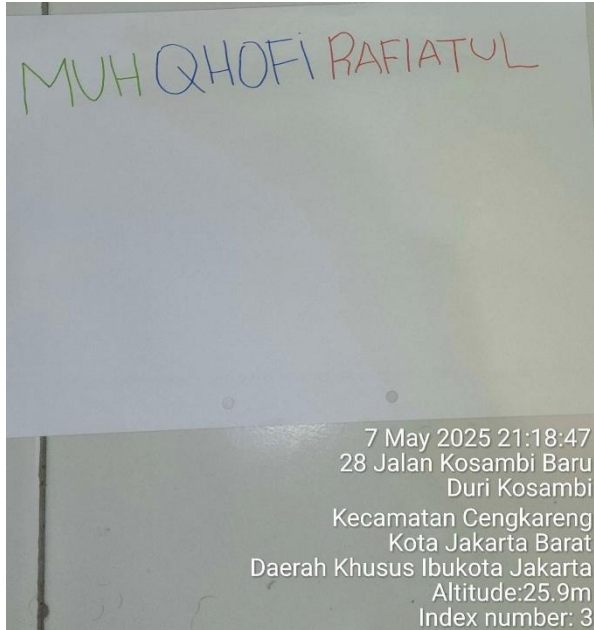 MUH QHOFi RAFIATUL
7 May 2025 21:18:47
28 Jalan Kosambi Baru
Duri Kosambi
Kecamatan Cengkareng
Kota Jakarta Barat
Daerah Khusus Ibukota Jakarta
Altitude:25.9m
Index number: 3